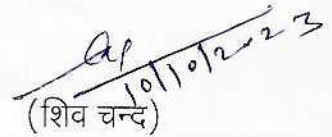 10/10/2023
(शिव चन्द)